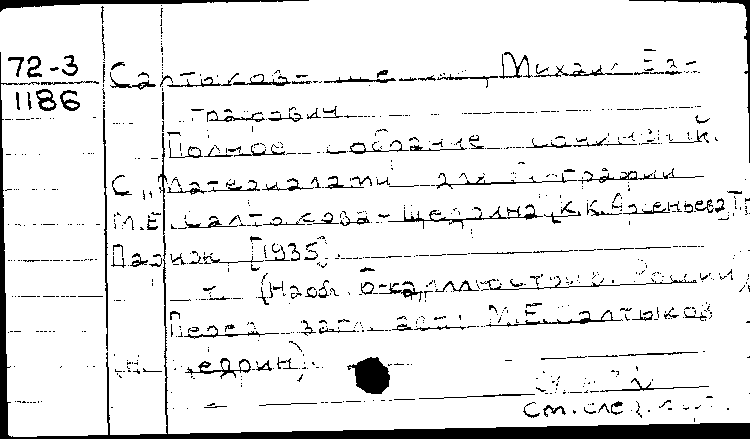 72-3
1186
Салтыков- Михаил Ев-
графович.
Полное собрание сочинений.
С „Материалами для биографии
М.Е. Салтыкова-Щедрина" К.К. Арсеньева.
Париж, [1935].
т. (Наобл. б-ка „Иллюстрир. России")
Перед загл. авт: М.Е. Салтыков
(Н. Щедрин).
см. след.